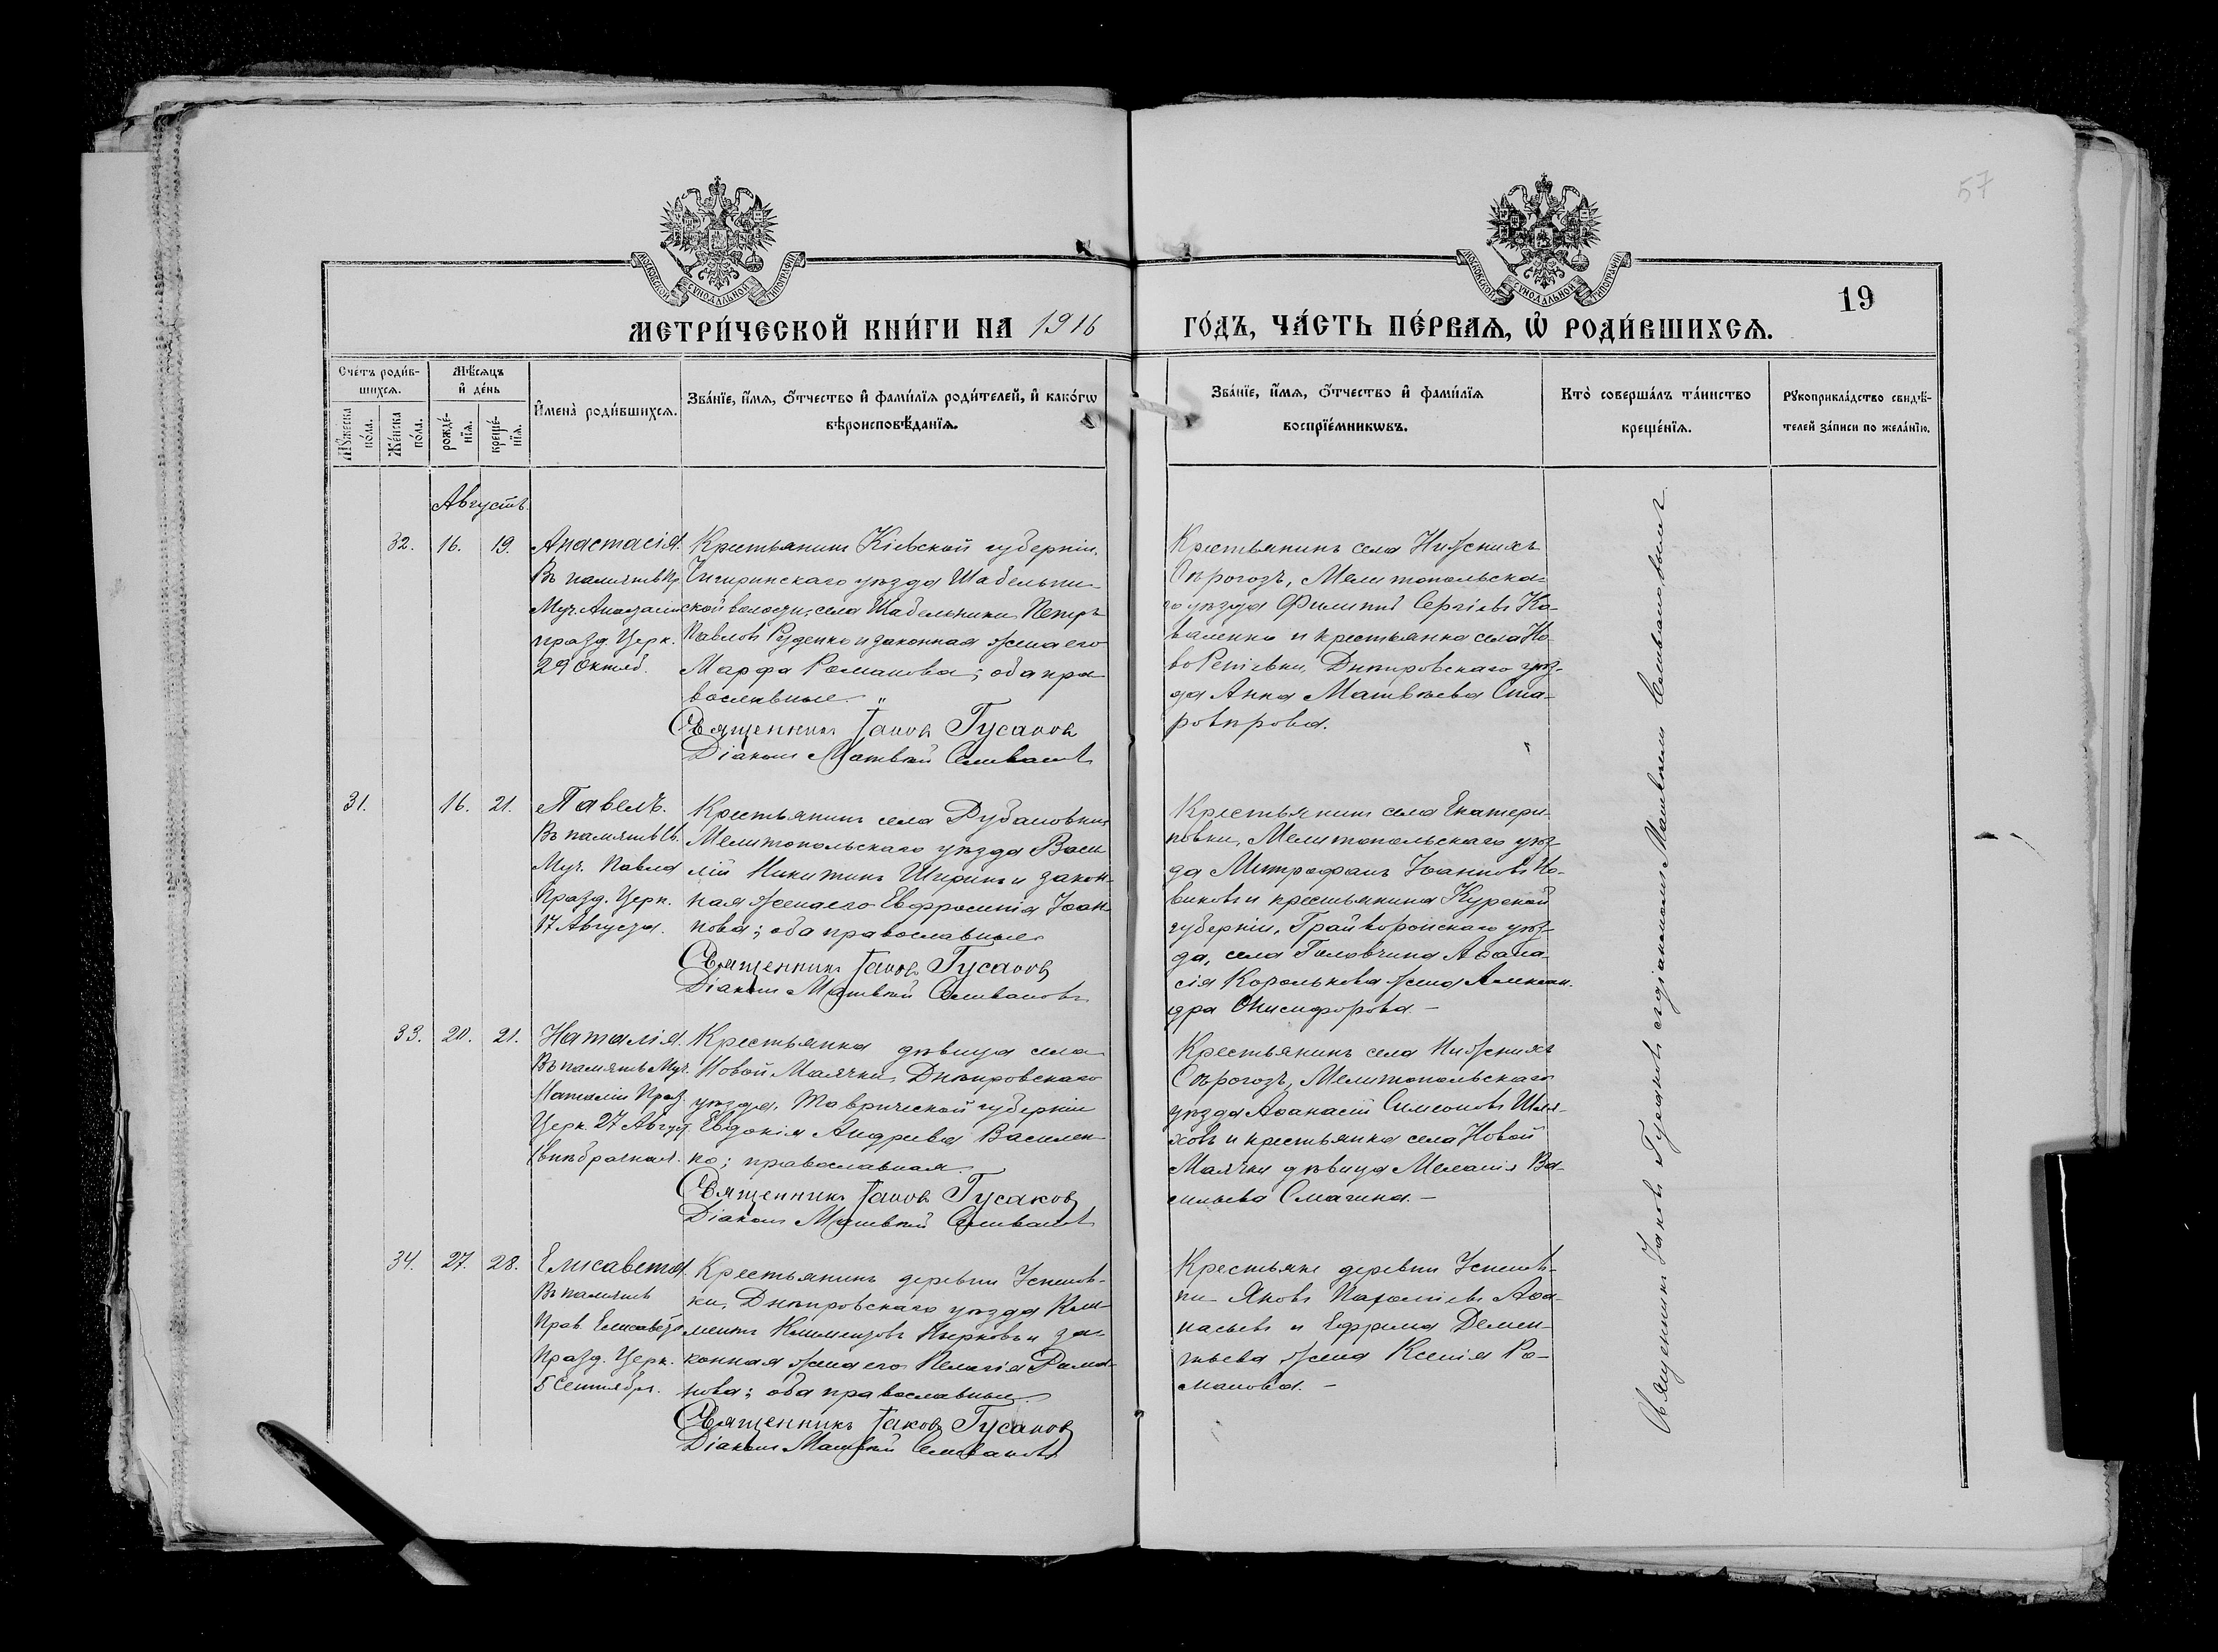 57
МОСКОВСКОЙ СѴНОДАЛЬНОЙ ТИПОГРАФІИ
МОСКОВСКОЙ СѴНОДАЛЬНОЙ ТИПОГРАФІИ
19
МЕТРИ́ЧЕСКОЙ КНИ́ГИ НА 1916
ГО́ДЪ, ЧА́СТЬ ПЕ́РВАѦ, Ѡ҆ РОДИ́ВШИХСѦ.
Сче́тъ роди́в-
шихсѧ.
Мѣ́сѧцъ
и҆ де́нь
Мꙋ́жеска
по́ла.
Же́нска
по́ла.
рожде́-
нїѧ.
креще́-
нїѧ.
И҆мена̀ роди́вшихсѧ.
Зва́нїе, и҆́мѧ, ѻ҆́тчество и҆ фами́лїѧ роди́телей, и҆ како́гѡ
вѣроисповѣ́данїѧ.
Зва́нїе, и҆́мѧ, ѻ҆́тчество и҆ фами́лїѧ
воспрїе́мникѡвъ.
Кто̀ соверша́лъ та́инство
креще́нїѧ.
Рꙋкоприкла́дство свидѣ́-
телей за́писи по жела́нїю.
Августъ.
32. 16. 19.
Анастасія.
Въ память Пр
Муч. Анастасіи
празд. Церк.
29 Октяб.
Крестьянинъ Кіевской губерніи,
Чигиринскаго уѣзда Шабельни-
ской волости, села Шабельники Петръ
Павловъ Руденко и законная жена его
Марфа Романова; оба пра
вославные.
Священникъ Іаковъ Гусаковъ
Діаконъ Матвѣй Селивановъ
Крестьянинъ села Нижнихъ
Сѣрогозъ, Мелитопольска-
го уѣзда Филиппъ Сергіевъ Ко-
валенко и крестьянка села Но-
во Репіевки, Днѣпровскаго уѣз-
да Анна Матвѣева Ста-
ровѣрова.
31. 16. 21.
Павелъ.
Въ память Св.
Муч. Павла
Празд. Церк.
17 Августа.
Крестьянинъ села Рубановки
Мелитопольскаго уѣзда Васи
лій Никитинъ Ширинъ и закон-
ная жена его Евфросинія Іоан
нова; оба православные.
Священникъ Іаковъ Гусаковъ
Діаконъ Матвѣй Селивановъ
Крестьянинъ села Екатери-
новки, Мелитопольскаго уѣз-
да Митрофанъ Іоанновъ Но-
виковъ и крестьянина Курской
губерніи, Грайворонскаго уѣз-
да, села Головчина Аѳана-
сія Королькова жена Алексан-
дра Онисифорова. —
33. 20. 21.
Наталія.
Въ память Муч.
Наталіи Празд.
Церк. 27 Август.
(внѣбрачная.
Крестьянка дѣвица села
Новой Маячки Днѣпровскаго
уѣзда, Таврической губерніи
Евдокія Андреева Василен-
ко; православная.
Священникъ Іаковъ Гусаковъ
Діаконъ Матвѣй Селивановъ
Крестьянинъ села Нижнихъ
Сѣрогозъ, Мелитопольскаго
уѣзда Аѳанасій Симеоновъ Шля-
ховъ и крестьянка села Новой
Маячки дѣвица Меланія Ва-
сильева Смагина. —
34. 27. 28.
Елисавета.
Въ память
Прав. Елисаветы
Празд. Церк.
5 Сентября.
Крестьянинъ деревни Успенов-
ки, Днѣпровскаго уѣзда Кли-
ментъ Климентовъ и за-
конная жена его Пелагія Рома-
нова; оба православные.
Священникъ Іаковъ Гусаковъ
Діаконъ Матвѣй Селивановъ
Крестьяне деревни Успенов-
ки Яковъ Аѳа-
насьевъ и Ефрема Демен-
тьева жена Ксенія Ро-
манова. —
Священникъ Іаковъ Гусаковъ съ діакономъ Матвѣемъ Селивановымъ.